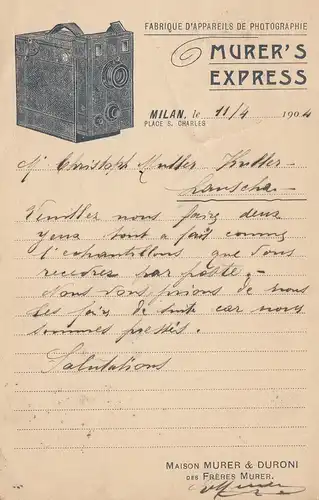 FABRIQUE D'APPAREILS DE PHOTOGRAPHIE
MURER'S
EXPRESS
MILAN, le 11/4 1904
PLACE S. CHARLES
Mr Christoph Muller
Lauscha
Veuillez nous faire deux
yeux tout a fait comme
l'echantillons que vous
recevrez par poste,
Nous vous prions de nous
les faire de suite car nous
sommes pressés.
Salutations
MAISON MURER & DURONI
DES FRÈRES MURER.